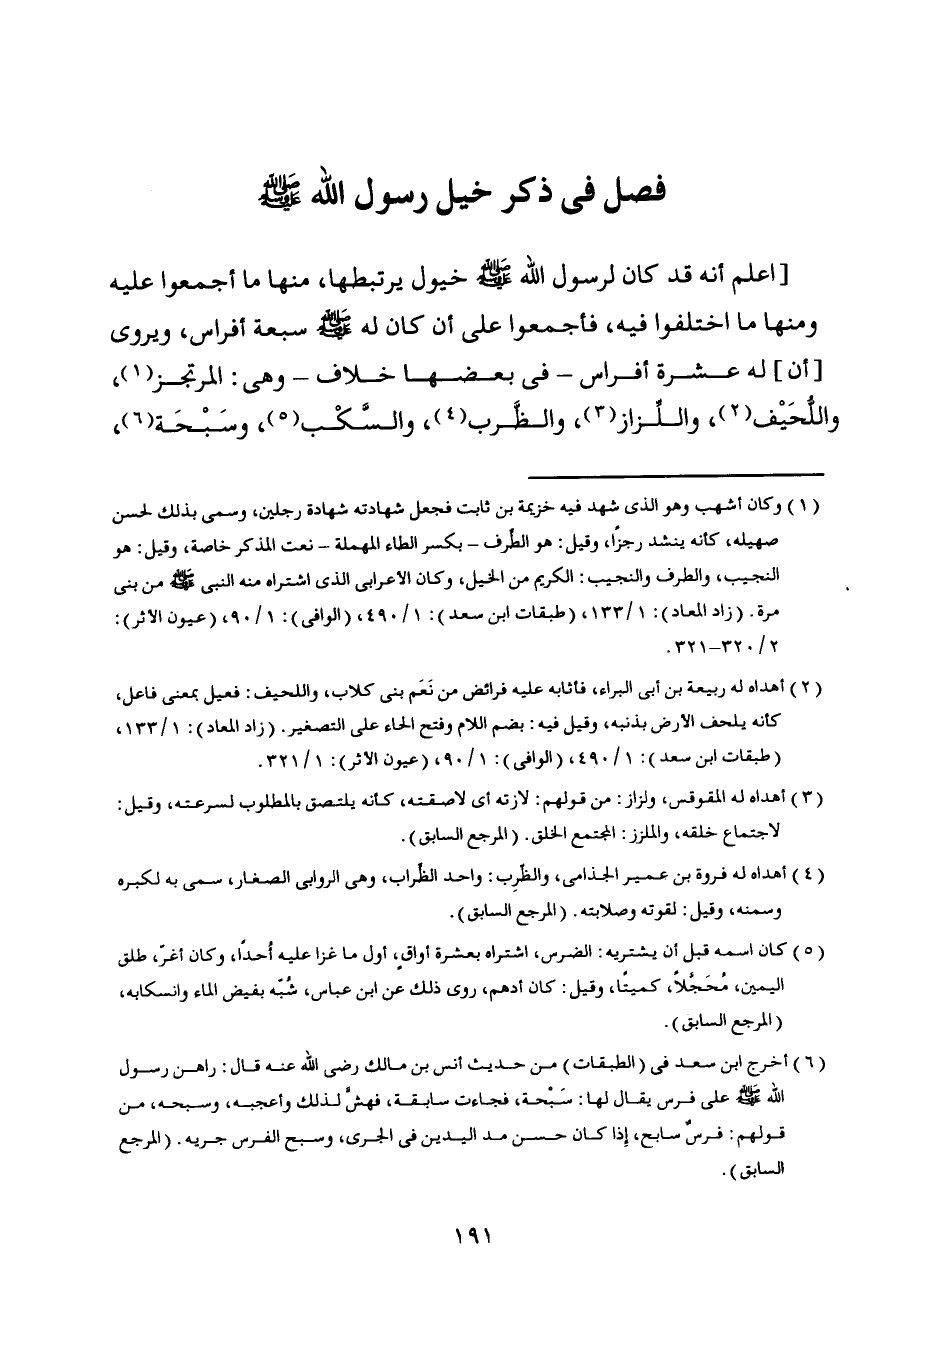 فصل فى ذكر خيل رسول الله ﷺ
[اعلم أنه قد كان لرسول الله ﷺ خيول يرتبطها، منها ما أجمعوا عليه
ومنها ما اختلفوا فيه، فأجمعوا على أن كان له ﷺ سبعة أفراس، ويروى
[أن] له عشرة أفراس – فى بعضها خلاف – وهى: المرتجز(١)،
واللُّحَيْف(٢)، واللِّزاز(٣)، والظَّرب(٤)، والسَّكْب(٥)، وسَبْحَة(٦)،
(١) وكان أشهب وهو الذى شهد فيه خزيمة بن ثابت فجعل شهادته شهادة رجلين، وسمى بذلك لحسن
صهيله، كأنه ينشد رجزاً، وقيل: هو الطِّرف – بكسر الطاء المهملة – نعت المذكر خاصة، وقيل: هو
النجيب، والطرف والنجيب: الكريم من الخيل، وكان الأعرابى الذى اشتراه منه النبى ﷺ من بنى
مرة. (زاد المعاد): ١/ ١٣٣، (طبقات ابن سعد): ١/ ٤٩٠، (الوافى): ١/ ٩٠، (عيون الأثر):
٢/ ٣٢٠–٣٢١.
(٢) أهداه له ربيعة بن أبى البراء، فأثابه عليه فرائض من نَعَم بنى كلاب، واللحيف: فعيل بمعنى فاعل،
كأنه يلحف الأرض بذنبه، وقيل فيه: بضم اللام وفتح الحاء على التصغير. (زاد المعاد): ١/ ١٣٣،
(طبقات ابن سعد): ١/ ٤٩٠، (الوافى): ١/ ٩٠، (عيون الأثر): ١/ ٣٢١.
(٣) أهداه له المقوقس، ولزاز: من قولهم: لازته أى لاصقته، كأنه يلتصق بالمطلوب لسرعته، وقيل:
لاجتماع خلقه، والملزز: المجتمع الخلق. (المرجع السابق).
(٤) أهداه له فروة بن عمير الجذامى، والظَّرِب: واحد الظِّراب، وهى الروابى الصغار، سمى به لكبره
وسمنه، وقيل: لقوته وصلابته. (المرجع السابق).
(٥) كان اسمه قبل أن يشتريه: الضرس، اشتراه بعشرة أواقٍ، أول ما غزا عليه أُحداً، وكان أغرّ، طلق
اليمين، مُحَجَّلاً، كميتًا، وقيل: كان أدهم، روى ذلك عن ابن عباس، شُبّه بفيض الماء وانسكابه،
(المرجع السابق).
(٦) أخرج ابن سعد فى (الطبقات) من حديث أنس بن مالك رضى الله عنه قال: راهن رسول
الله ﷺ على فرس يقال لها: سَبْحة، فجاءت سابقة، فهشَّ لذلك وأعجبه، وسبحه، من
قولهم: فرسٌ سابح، إذا كان حسن مد اليدين فى الجرى، وسبح الفرس جريه. (المرجع
السابق).
١٩١